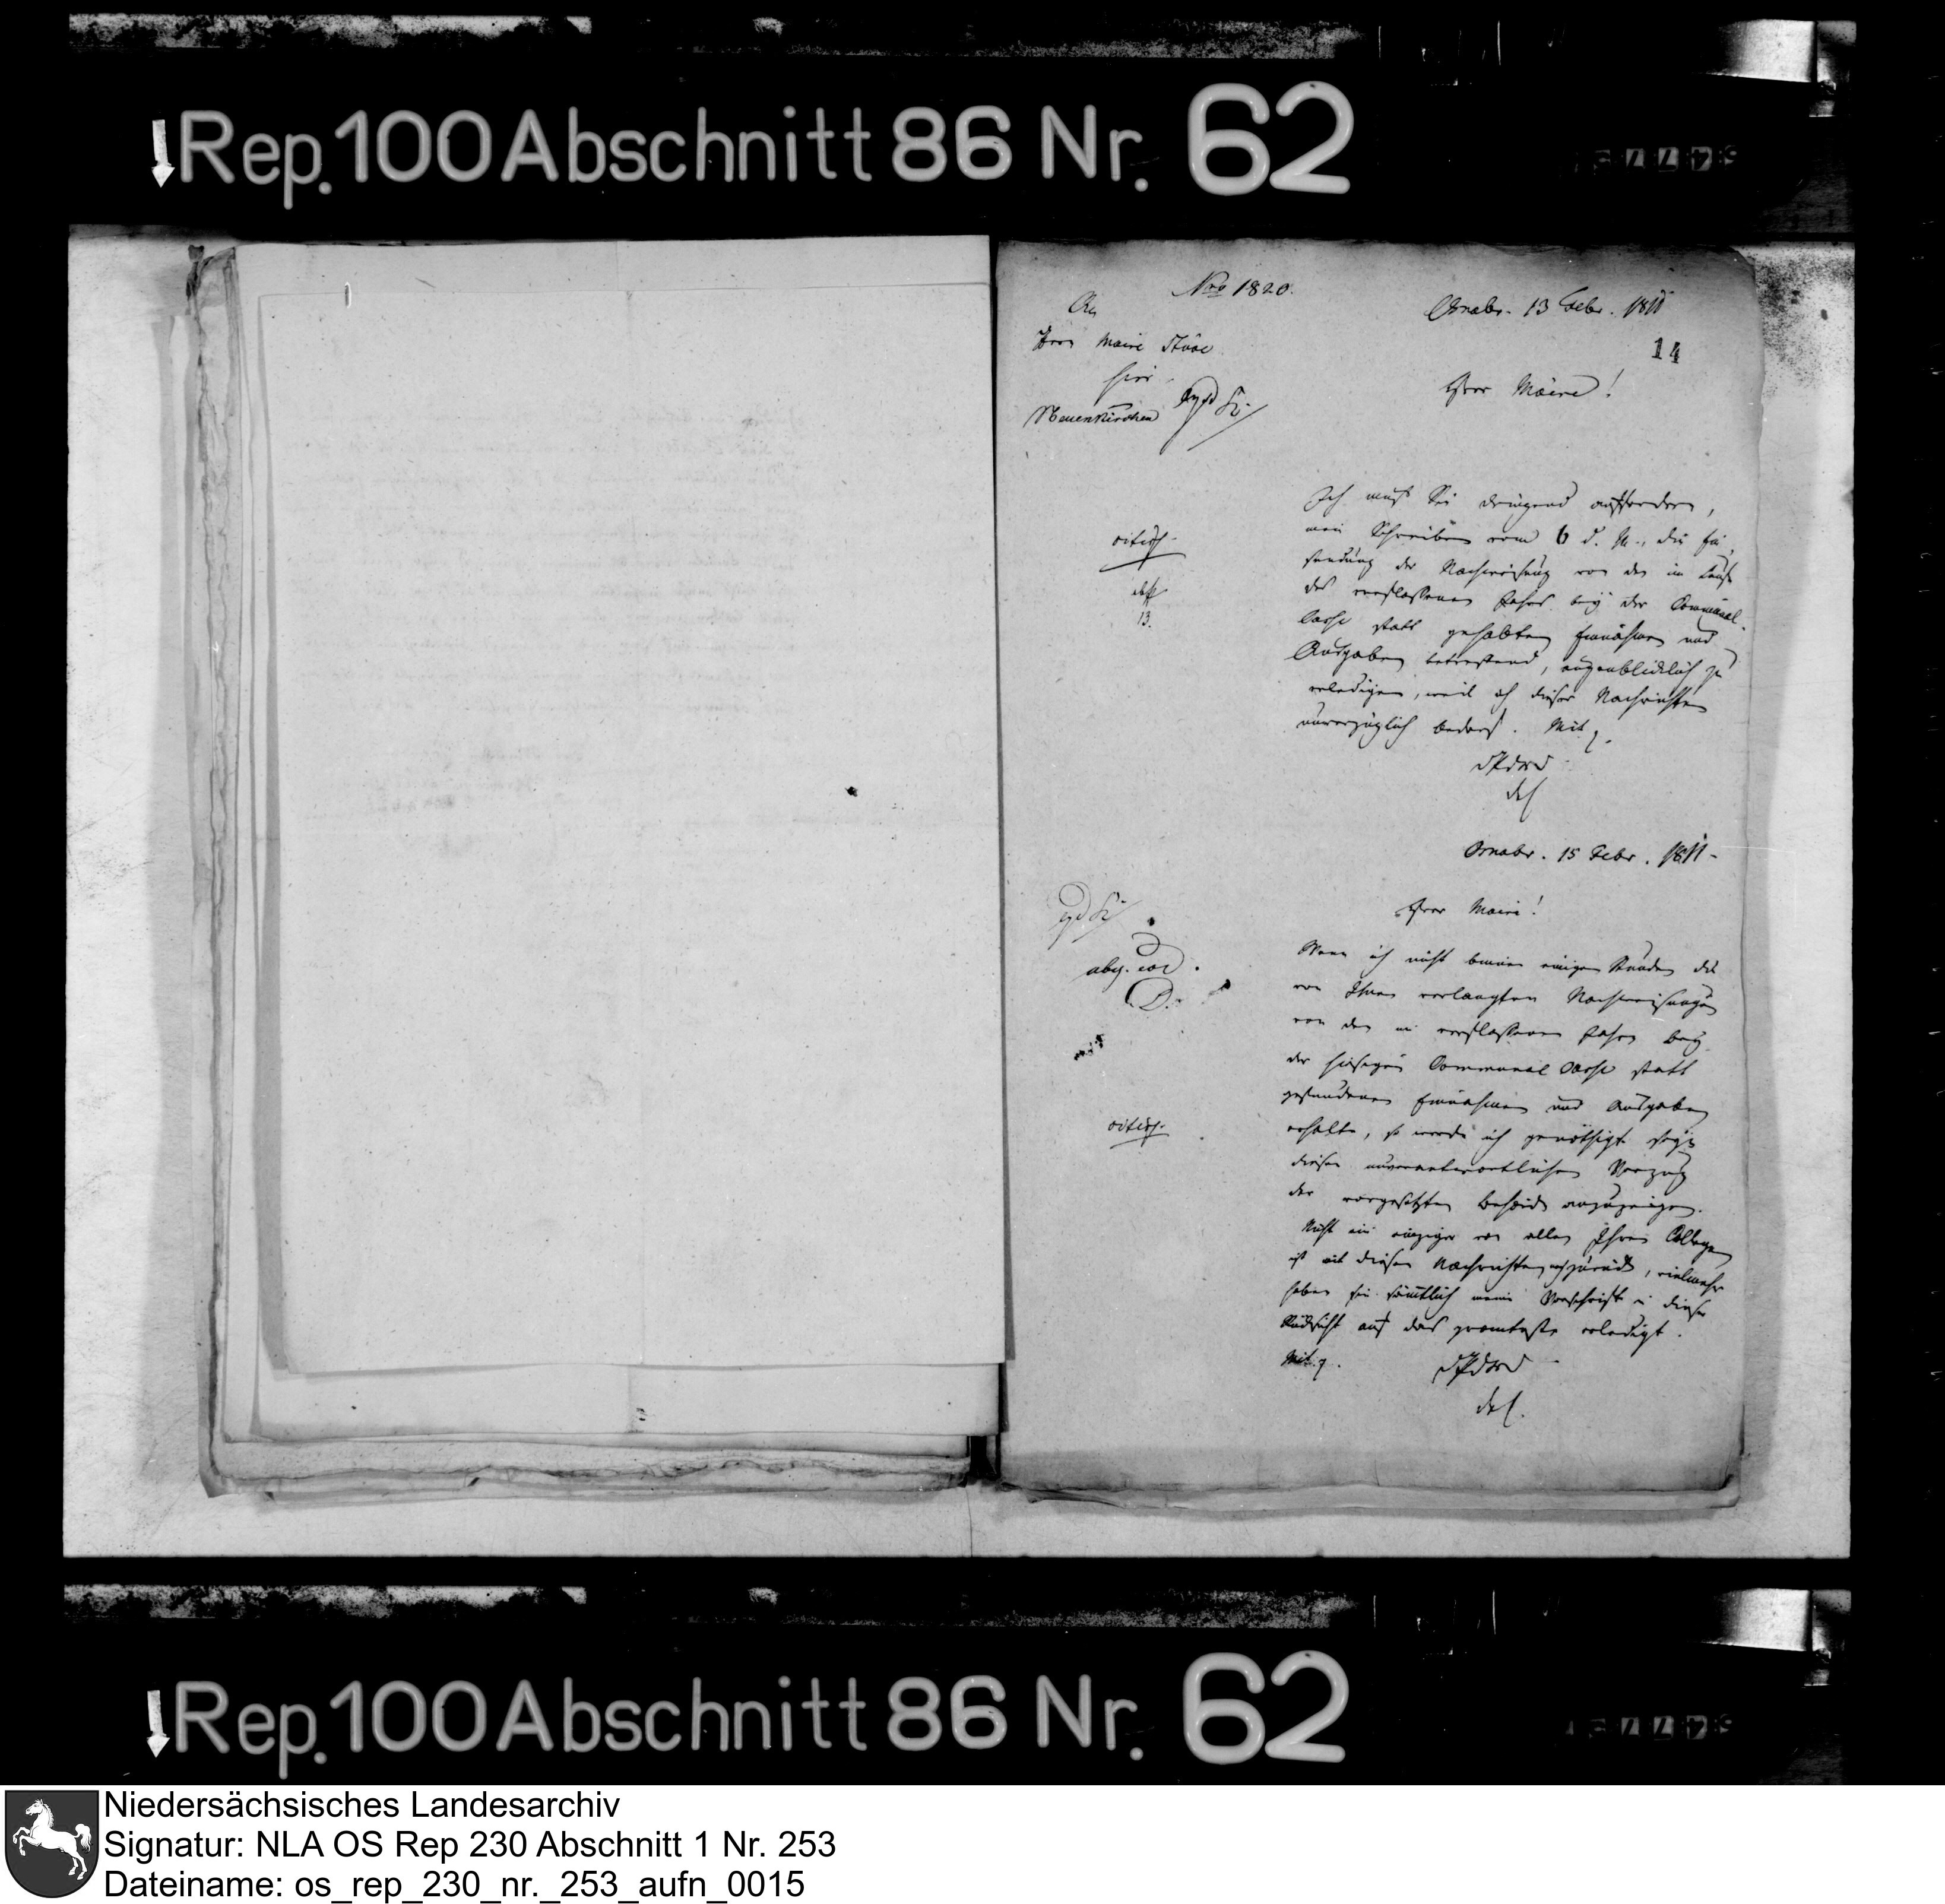 Rep. 100 Abschnitt 86 Nr. 62
Nro 1820.
Osnabr. 13 Febr. 1811
14
An
Herrn Maire Stüve
hier
Neuenkirchen
Herr Maire!
citiss.
13.
Ich muß Sie dringend auffordern,
mein Schreiben vom 6 d. M., die Ein-
sendung der Nachweisung von den im Laufe
des verflossenen Jahrs bey der Communal-
Casse statt gehabten Einnahmen und
Ausgaben betreffend, augenblicklich zu
erledigen, weil ich dieser Nachrichten
unverzüglich bedarf. Mit
Osnabr. 15 Febr. 1811.
Herr Maire!
Wenn ich nicht binnen einigen Stunden die
von Ihnen verlangten Nachweisungen
von den im verflossenen Jahre bey
der hiesigen Communal Casse statt
gefundenen Einnahmen und Ausgaben
erhalte, so werde ich genöthigt seyn
diesen unverantwortlichen Verzug
der vorgesetzten Behörde anzuzeigen.
citiss.
Nicht ein einziger von allen Ihren Collegen
ist mit diesen Nachrichten zurück, vielmehr
haben sie sämtlich meine Vorschrift in dieser
Rücksicht auf das promteste erledigt.
Mit
Rep. 100 Abschnitt 86 Nr. 62
Niedersächsisches Landesarchiv
Signatur: NLA OS Rep 230 Abschnitt 1 Nr. 253
Dateiname: os_rep_230_nr._253_aufn_0015